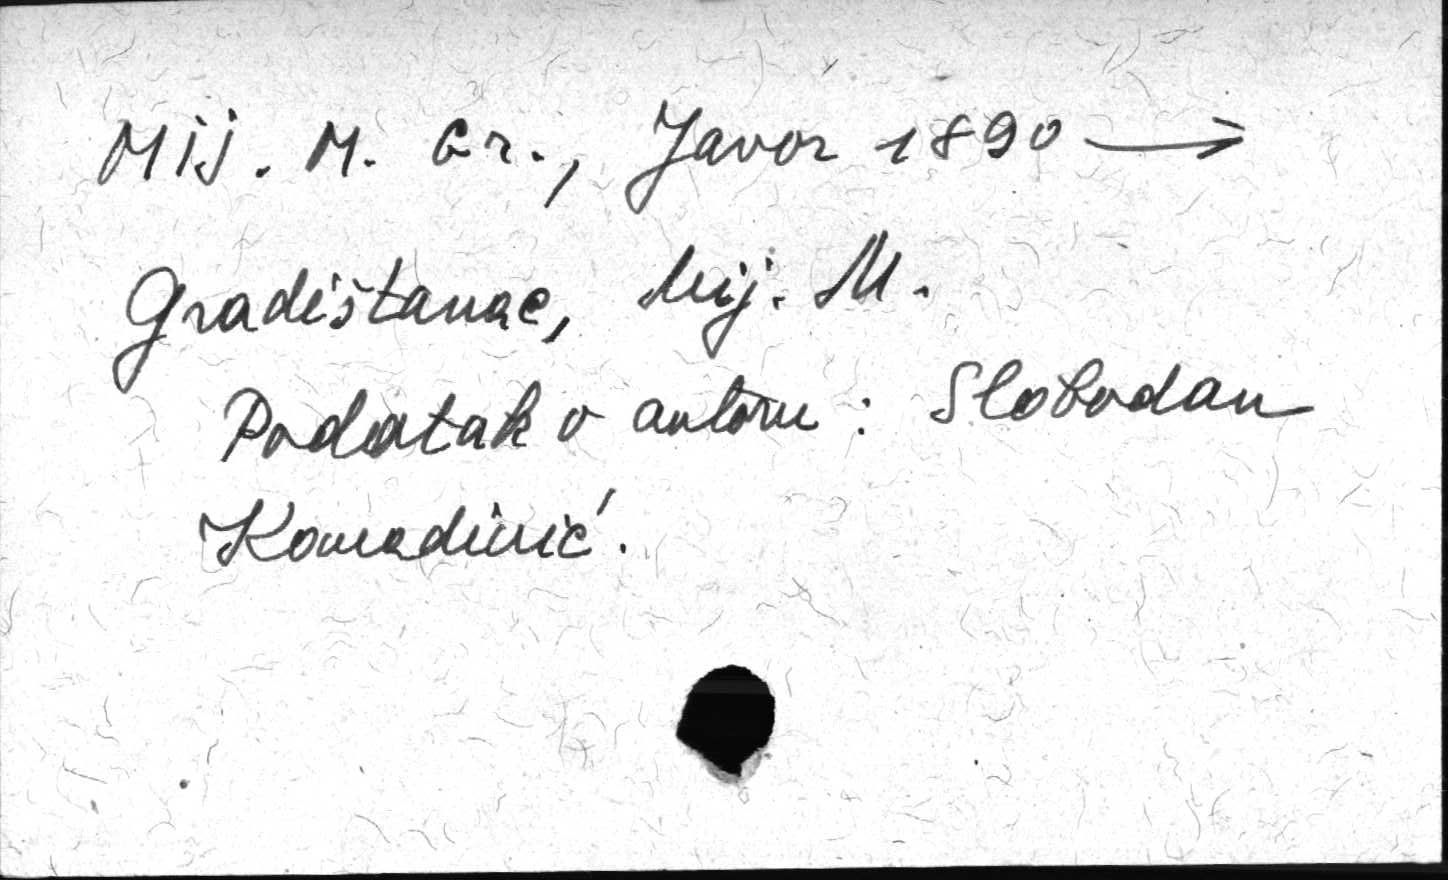 Mij. M. Gr., Javor 1890 →
Gradištanac, Mij. M.
Podatak o autoru: Slobodan
Komadinić.